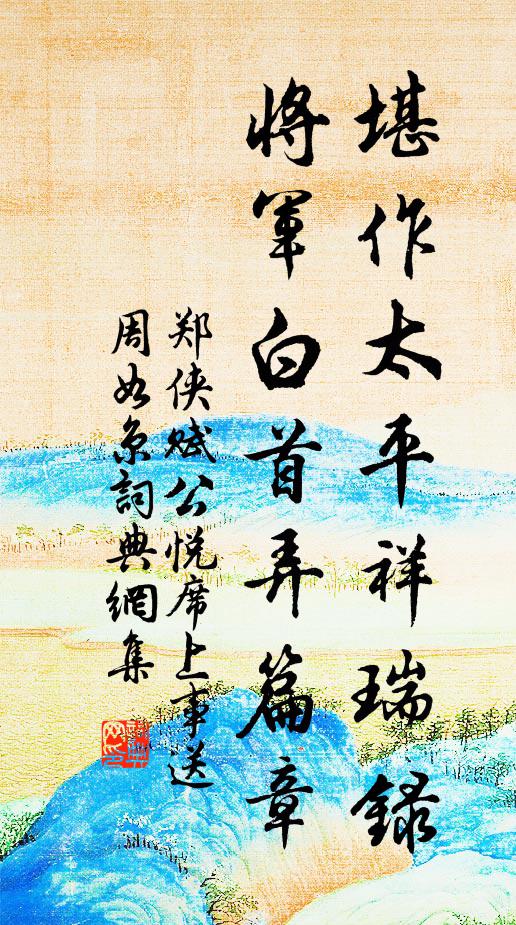 堪作太平祥瑞録
將軍白首弄篇章
郑侠赋公悦席上事送
周如京詞典網集